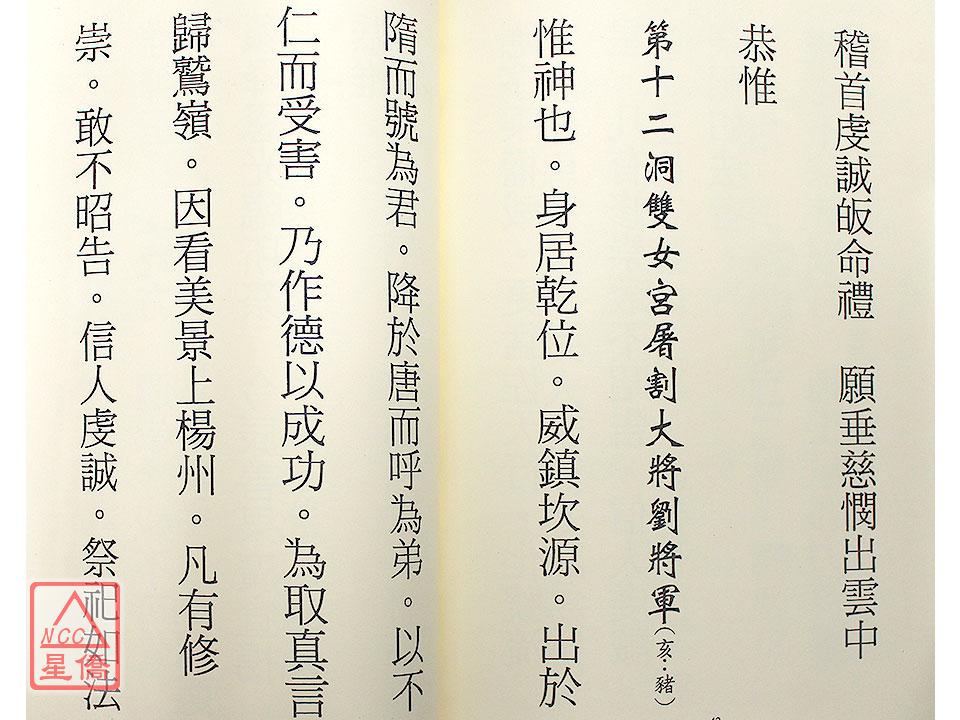 稽首虔誠皈命禮　願垂慈憫出雲中
恭惟
第十二洞雙女宮屠割大將劉將軍(亥．豬)
惟神也。身居乾位。威鎮坎源。出於
隋而號為君。降於唐而呼為弟。以不
仁而受害。乃作德以成功。為取真言
歸鷲嶺。因看美景上楊州。凡有修
崇。敢不昭告。信人虔誠。祭祀如法
NCC
星僑